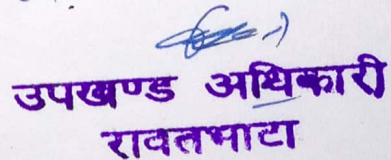 उपखण्ड अधिकारी
रावतभाटा